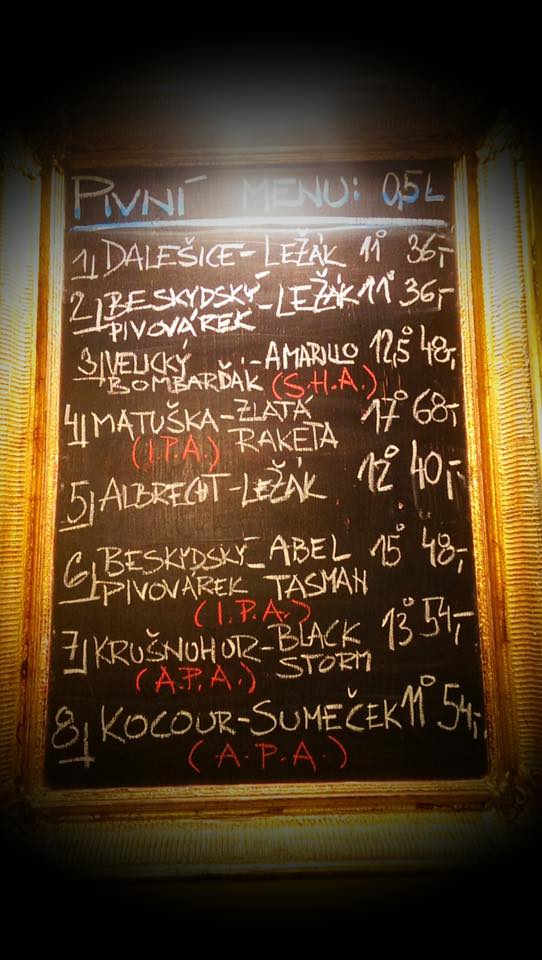 PIVNÍ MENU: 0,5L
1, DALEŠICE - LEŽÁK 11° 36,-
2, BESKYDSKÝ - LEŽÁK 11° 36,-
PIVOVÁREK
3, VELICKÝ - AMARILLO 12,5° 48,-
BOMBARĎÁK (S.H.A.)
4, MATUŠKA - ZLATÁ 17° 68,-
(I.P.A.) RAKETA
5, ALBRECHT - LEŽÁK 12° 40,-
6, BESKYDSKÝ - ABEL 15° 48,-
PIVOVÁREK TASMAN
(I.P.A.)
7, KRUŠNOHOR - BLACK 13° 54,-
(A.P.A.) STORM
8, KOCOUR - SUMEČEK 11° 54,-
(A.P.A.)